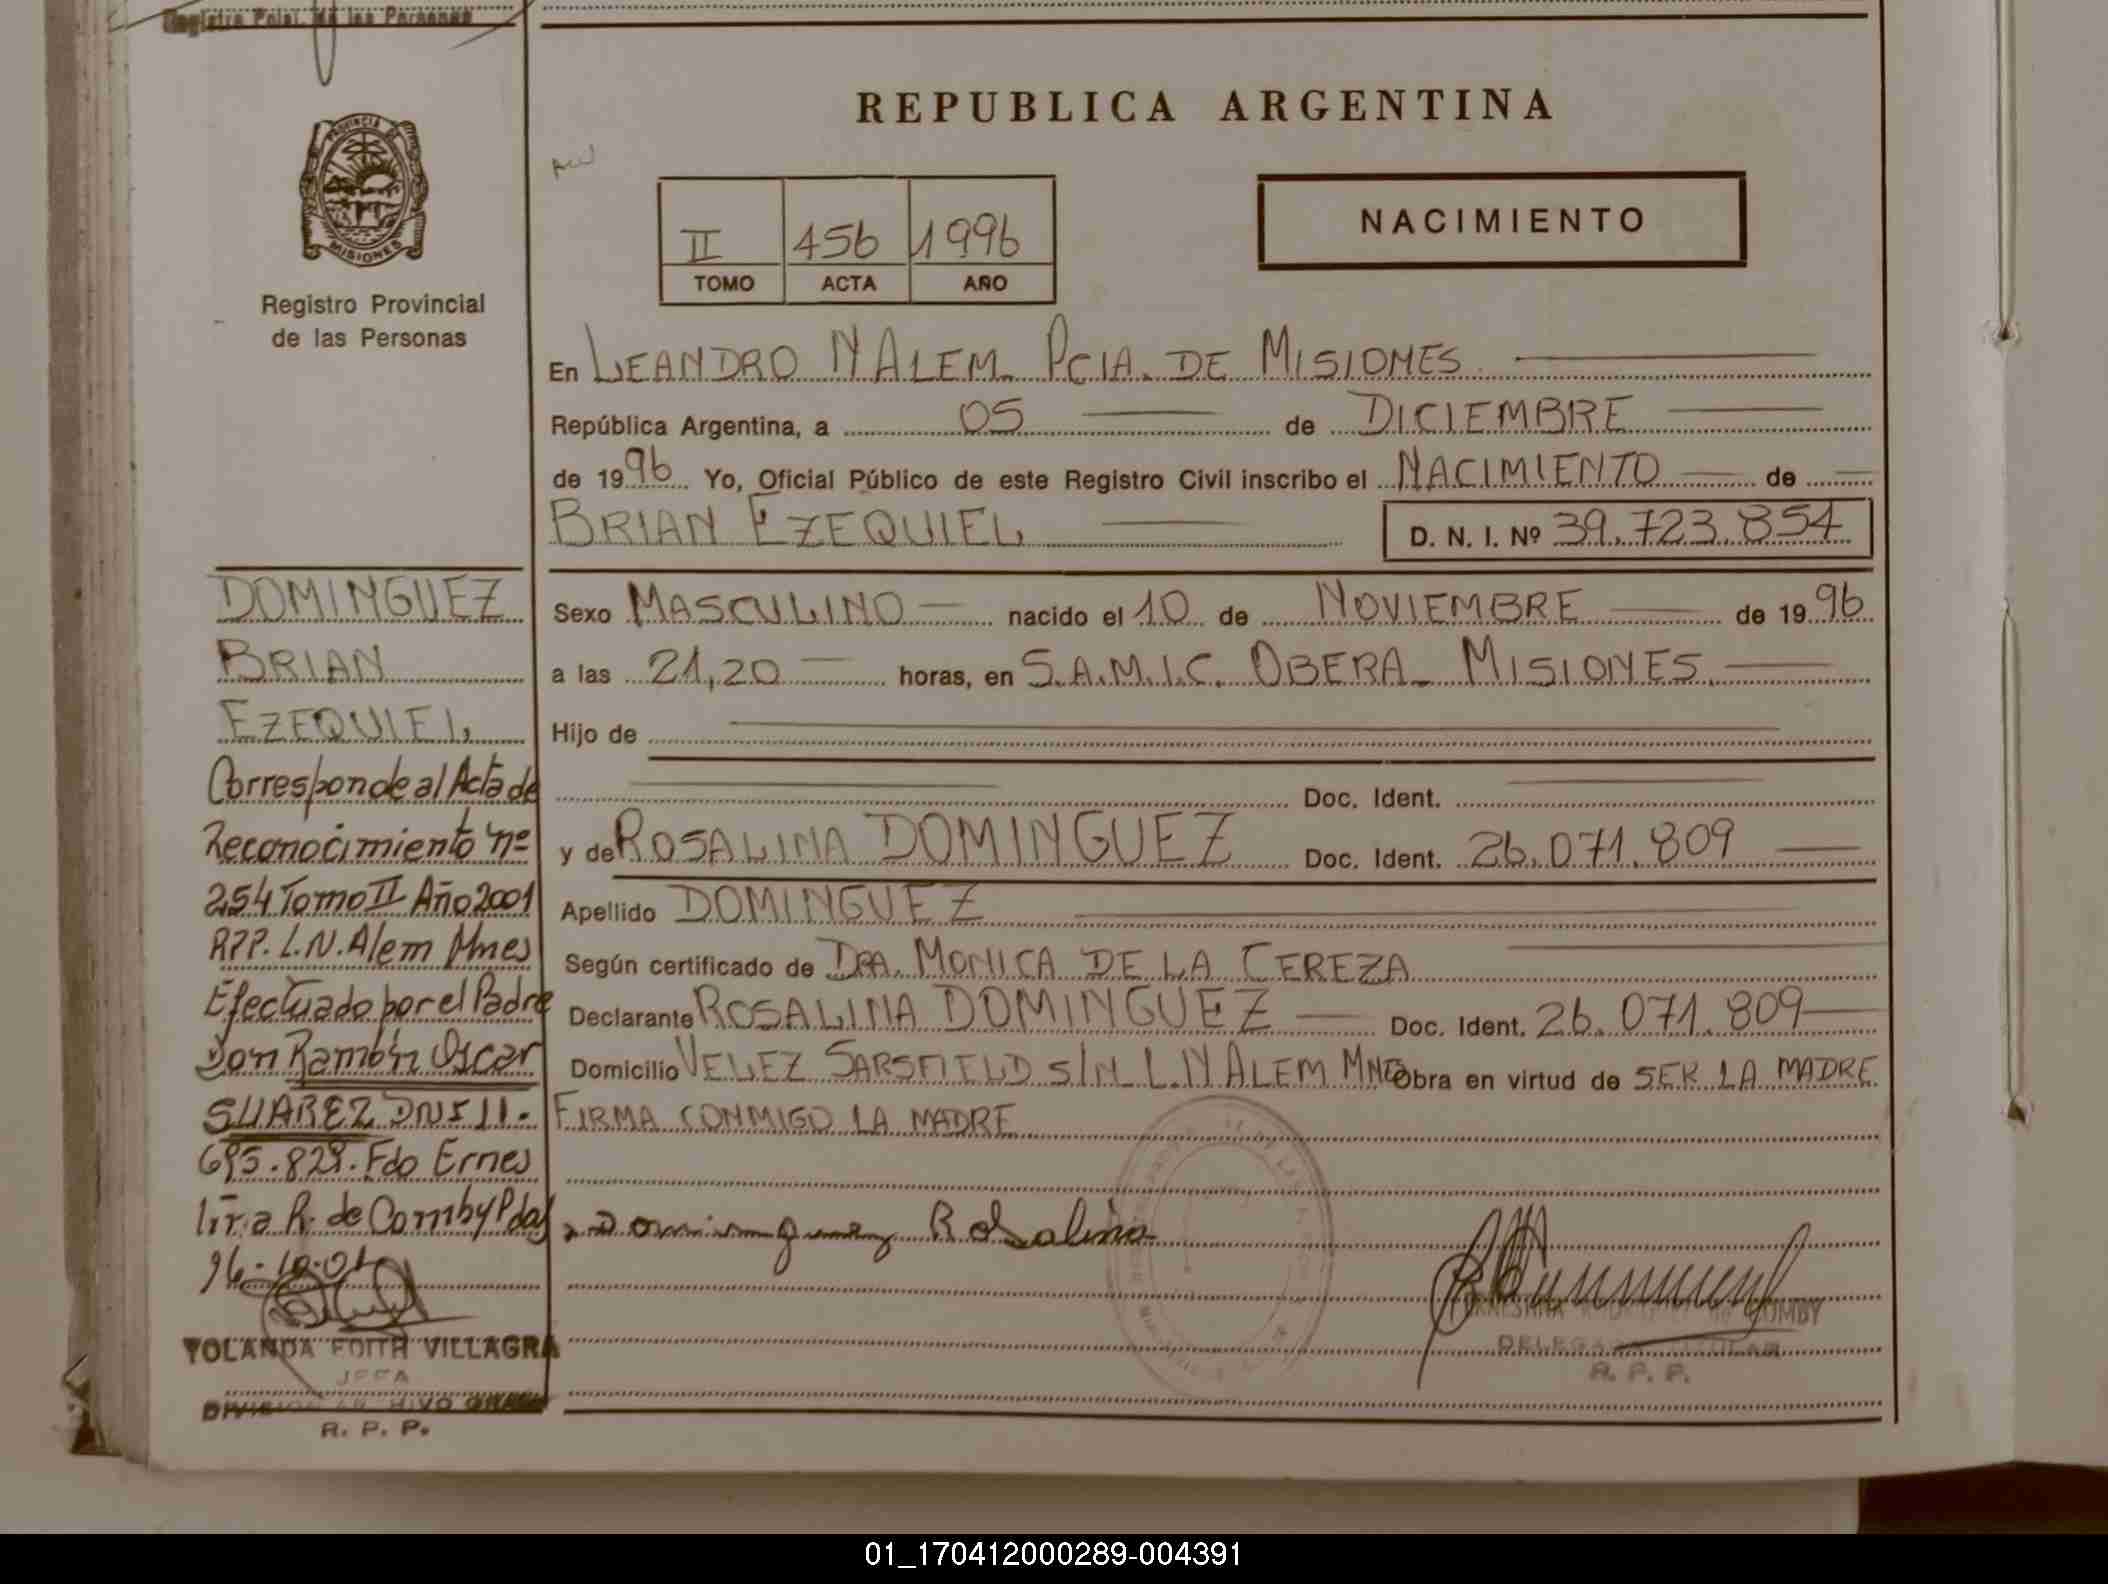 Registro Pcial. de las Personas
PROVINCIA DE
MISIONES
Registro Provincial
de las Personas
REPUBLICA ARGENTINA
II 456 1996
TOMO ACTA AÑO
NACIMIENTO
En LEANDRO N ALEM. PCIA. DE MISIONES
República Argentina, a 05 de DICIEMBRE
de 1996 Yo, Oficial Público de este Registro Civil inscribo el NACIMIENTO de
BRIAN EZEQUIEL D. N. I. Nº 39.723.854
Sexo MASCULINO nacido el 10 de NOVIEMBRE de 1996
a las 21,20 horas, en S.A.M.I.C. OBERA_ MISIONES.
Hijo de
Doc. Ident.
y de ROSALINA DOMINGUEZ Doc. Ident. 26.071.809
Apellido DOMINGUEZ
Según certificado de DRA. MONICA DE LA CEREZA
Declarante ROSALINA DOMINGUEZ Doc. Ident. 26.071.809
Domicilio VELEZ SARSFIELD S/N L.N ALEM MNES Obra en virtud de SER LA MADRE
FIRMA CONMIGO LA MADRE
Dominguez Rosalina
COMBY
R. P. P.
DOMINGUEZ
BRIAN
EZEQUIEL
Corresponde al Acta de
Reconocimiento nº
254 Tomo II Año 2001
RPP. L.N. Alem Mnes
Efectuado por el Padre
Don Ramón Oscar
SUAREZ DNI 11.
695.829. Fdo Ernes
tina R. de Comby Pdas
16-10-01
YOLANDA EDITH VILLAGRA
JEFA
R. P. P.
01_170412000289-004391